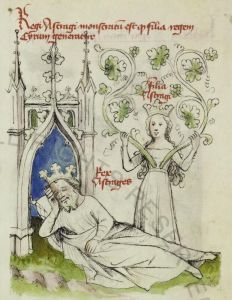 Regi Astragi monstratum est q filia regem
Cyrum generaret
filia
Astragi
Rex
Astrages